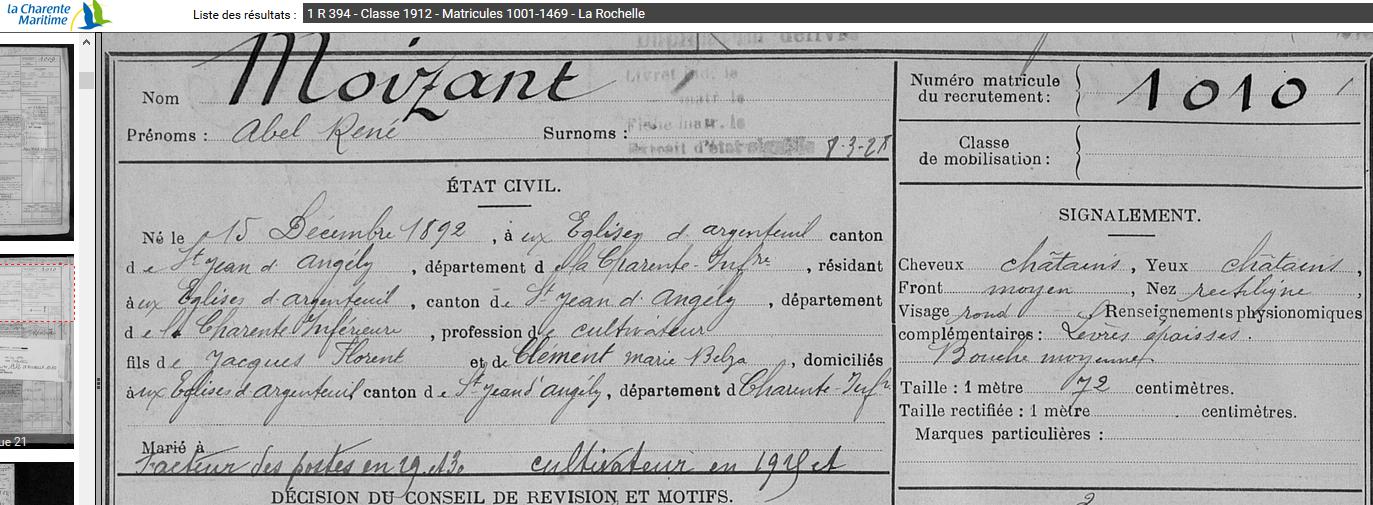 la Charente
Maritime
Liste des résultats : 1 R 394 - Classe 1912 - Matricules 1001-1469 - La Rochelle
Nom Moizant
Prénoms : Abel René Surnoms :
Livret ind. le
matr. le
Fiche matr. le
Extrait d'état
Numéro matricule
du recrutement : 1010
Classe
de mobilisation :
ÉTAT CIVIL.
Né le 15 Décembre 1892, à ux Eglises d'argenteuil canton
de St Jean d'Angély, département de la Charente-Infre, résidant
à ux Eglises d'argenteuil, canton de St Jean d'Angély, département
de la Charente Inférieure, profession de cultivateur
fils de Jacques Florent et de Clément marie Belza, domiciliés
à ux Eglises d'argenteuil canton de St Jean d'angély, département d Charente-Infr
Marié à
Facteur des postes en 29 et 30 cultivateur en et
DÉCISION DU CONSEIL DE REVISION ET MOTIFS.
SIGNALEMENT.
Cheveux châtains, Yeux châtains,
Front moyen, Nez rectiligne,
Visage rond Renseignements physionomiques
complémentaires : Lèvres épaisses.
Bouche moyenne
Taille : 1 mètre 72 centimètres.
Taille rectifiée : 1 mètre centimètres.
Marques particulières :
ue 21